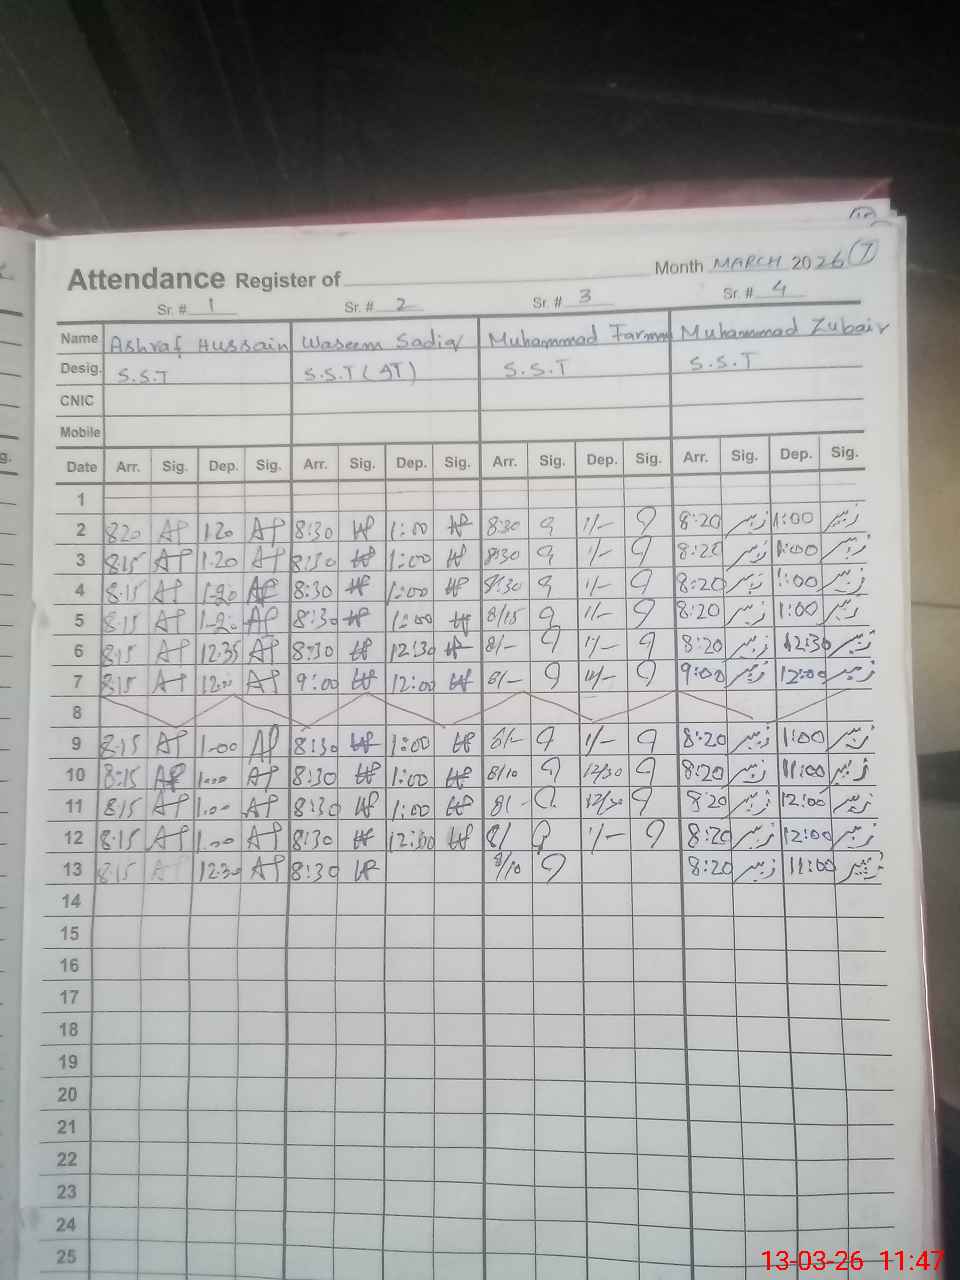 Attendance Register of Month MARCH 2026 (7)
Sr. # 1 Sr. # 2 Sr. # 3 Sr. # 4
Name Ashraf Hussain Waseem Sadiq Muhammad Muhammad Zubair
Desig. S.S.T S.S.T S.S.T S.S.T
CNIC
Mobile
Date Arr. Sig. Dep. Sig. Arr. Sig. Dep. Sig. Arr. Sig. Dep. Sig. Arr. Sig. Dep. Sig.
1
2 820 AP 1.20 AP 8:30 1:00 8:30 1/- 8:20 زبیر 1:00 زبیر
3 8.15 AP 1.20 AP 8:30 1:00 8:30 1/- 8:20 زبیر 1:00 زبیر
4 8.15 AP 1-20 AP 8:30 1:00 8:30 1/- 8:20 زبیر 1:00 زبیر
5 8.15 AP 1-20 AP 8:30 1:00 8/15 1/- 8:20 زبیر 1:00 زبیر
6 8.15 AP 12.35 AP 8:30 12:30 8/- 1/- 8:20 زبیر 12:30 زبیر
7 8.15 AP AP 9:00 12:00 8/- 9:00 زبیر 12:00 زبیر
8
9 8.15 AP 1.00 AP 8:30 1:00 8/- 1/- 8:20 زبیر 1:00 زبیر
10 8:15 AP 1.00 AP 8:30 1:00 8/10 12/30 8:20 زبیر 11:00 زبیر
11 8.15 AP 1.00 AP 8:30 1:00 8/- 12/30 8:20 زبیر 12:00 زبیر
12 8.15 AP 1.00 AP 8:30 12:00 8/ 1/- 8:20 زبیر 12:00 زبیر
13 8.15 AP 12.30 AP 8:30 8/10 8:20 زبیر 11:00 زبیر
14
15
16
17
18
19
20
21
22
23
24
25
13-03-26 11:47